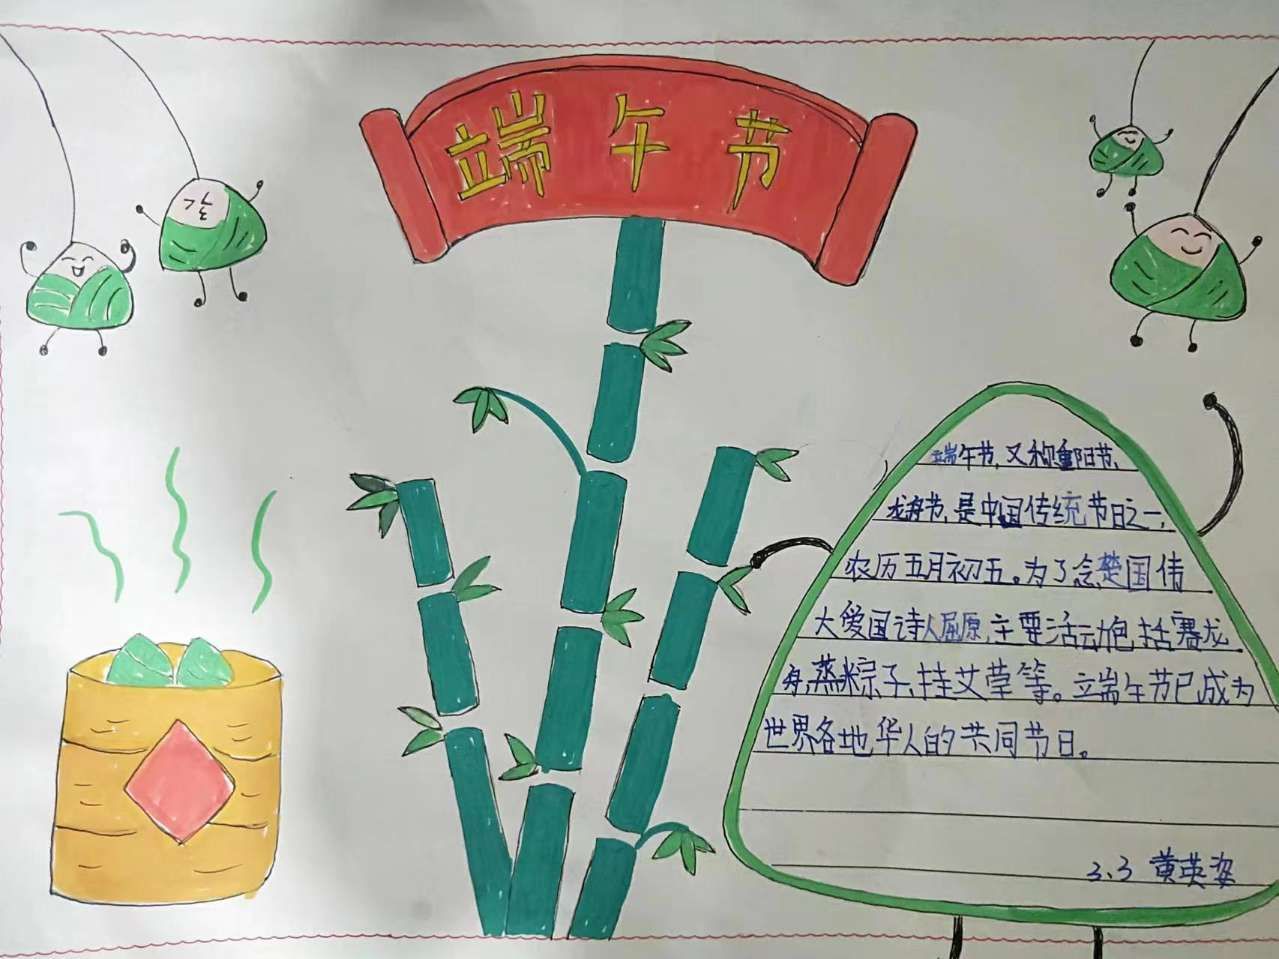 端午节
端午节,又称重阳节、
龙舟节,是中国传统节日之一,
农历五月初五。为了念楚国伟
大爱国诗人屈原,主要活动炮括赛龙
舟,蒸米粽子,挂艾草等。端午节已成为
世界各地华人的共同节日。
3.3 黄英姿